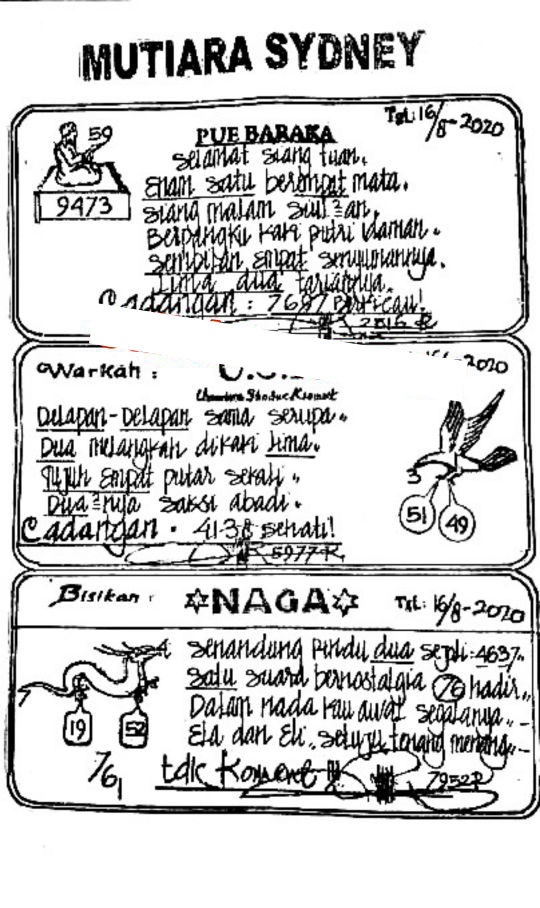 MUTIARA SYDNEY
Tgl: 16/8-2020
59
9473
PUE BARAKA
selamat siang tuan.
Enam satu berempat mata.
siang malam
Berpangku kaki putri idaman.
sembilan empat senyumannya.
Lima dua tariannya.
Cadangan : 7687
2816 R
Warkah :
2020
Delapan-Delapan sama serupa.
Dua melangkah dikaki lima.
Tujuh empat putar sekali.
Dua²nya saksi abadi.
Cadangan . 41-38 sehati!
5977 R
51
49
Bisikan :
NAGA
Tgl: 16/8-2020
19
52
senandung rindu dua sejoli :4637.
satu suara bernostalgia 76 hadir.
Dalam nada kau awal segalanya.
Ela dan Eli. setuju tenang menang.
761
tdk Koment
7952 R